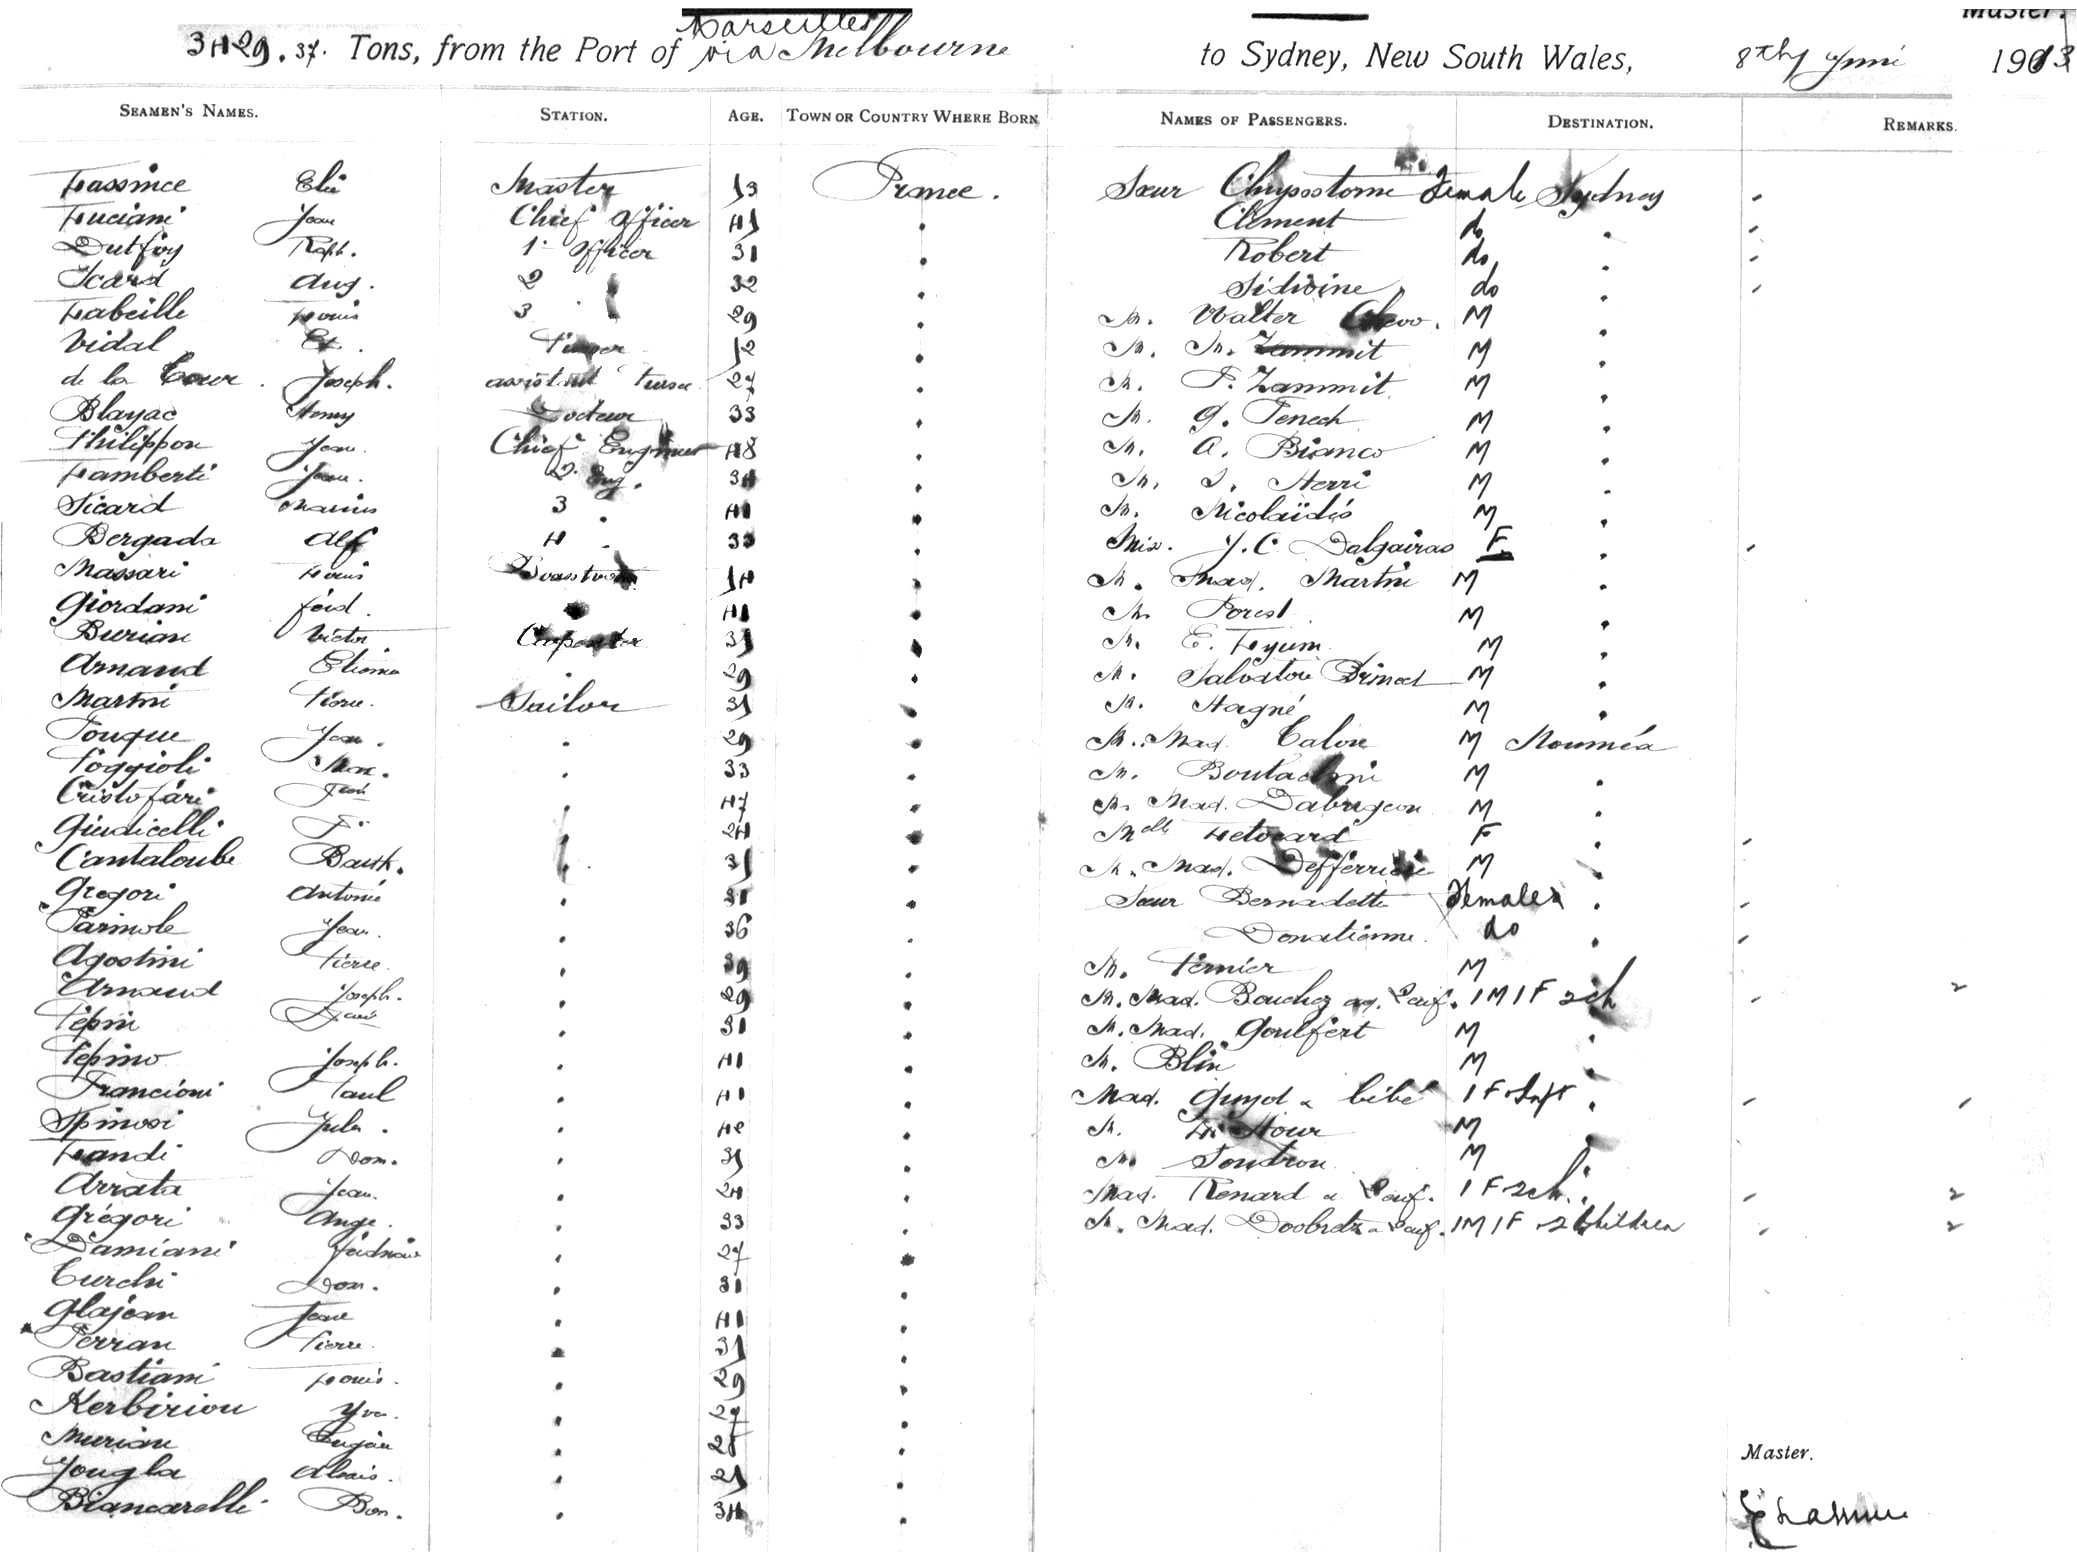 Marseilles
3429.37. Tons, from the Port of via Melbourne to Sydney, New South Wales, 8th 1913
SEAMEN'S NAMES. STATION. AGE. TOWN OR COUNTRY WHERE BORN NAMES OF PASSENGERS. DESTINATION. REMARKS.
Lassince Elie Master 53 France. Sœur Chrysostome Female Sydney
Luciani Jean Chief officer 45 Clement do
Dutfoy Raph. 1r officer 31 Robert do
Icard Aug. 2 32 Sidoine do
Labeille Louis 3 29 M. Walter M
Vidal Et. 52 M. M. Zammit M
de la Cour. Joseph. assistant 27 M. P. Zammit M
Blayac Henry Docteur 33 M. G. Fenech M
Philippon Jean. Chief Engineer 48 M. A. Bianco M
Lamberti Jean. 2d Eng. 34 M. S. Herri M
Sicard Marius 3 41 M. Nicolaïdis M
Bergada Alf 4 33 Miss. J. C Dalgairas F
Massari Louis 54 M. Mad. Martin M
Giordani ferd. 41 M. Forest M
Burian Victor Carpenter 35 M. E. Leyum M
Arnaud Etienne 29 M. Salvatore M
Martini Pierre. Sailor 35 M. Hagné M
Fouque Jean. 29 M. Mad. Talon M Nouméa
Poggioli Mar. 33 M. M
Cristofari 47 M. Mad. Dabugeon M
Giudicelli 24 Melle F
Cantaloube Barth. 35 M. Mad. Defferrière M
Gregori Antoine 31 Sœur Bernadette Females
Parmole Jean. 36 Donatienne. do
Agostini Pierre. 39 M. Pernier M
Arnaud Joseph. 29 M. Mad. Bouchez 1 M 1 F 2 ch
Pepin 31 M. Mad. Goulfert M
Pepino Joseph. 41 M. Blin M
Francioni Paul 41 Mad. Guyot & bébé 1 F
Spinosi Jules. M. M
Landi Dom. 35 M. Soudron M
Arrata Jean. 24 Mad. Renard 1 F 2 ch. 2
Grégori Ange. 33 M. Mad. 1 M 1 F 2 Children 2
Damiani 27
Curchi Dom. 31
Glajean Jean 41
Ferran Pierre. 35
Bastiani Louis. 29
Kerbiriou Yves. 27
Murian
Yougla Alexis. 25
Biancarelli Bon. 34
Master.